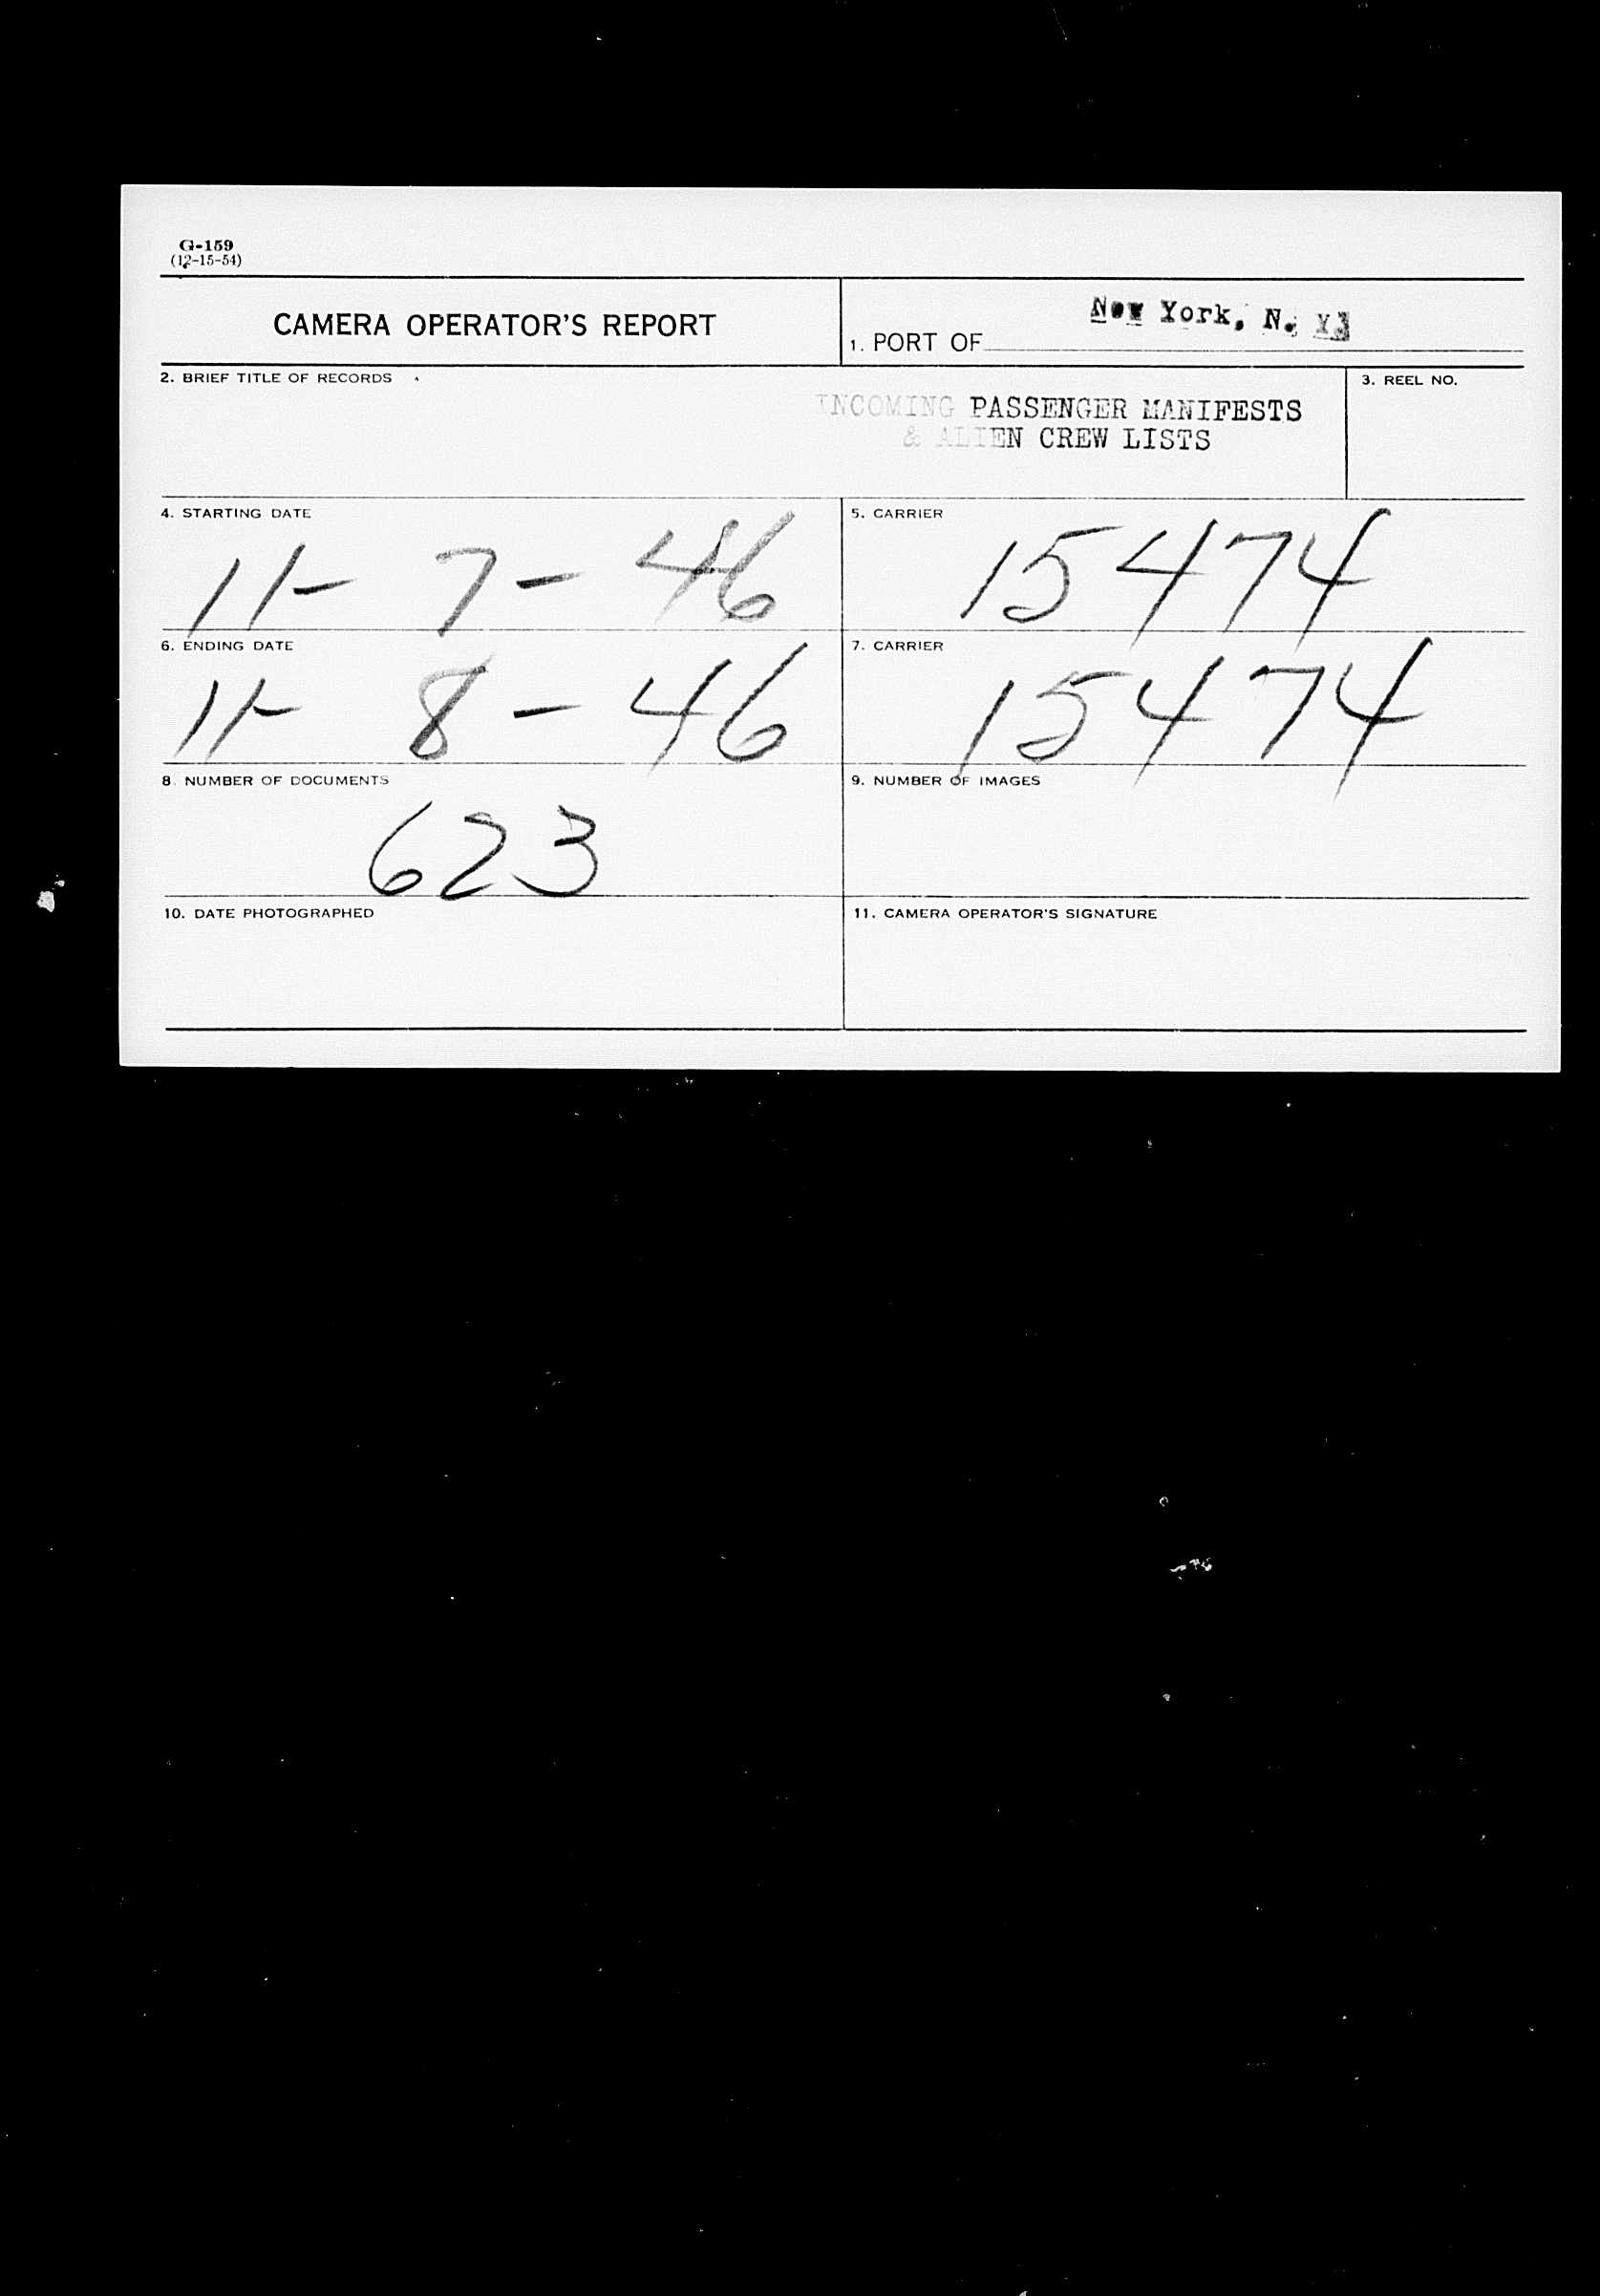 G-159
(12-15-54)
CAMERA OPERATOR'S REPORT
1. PORT OF New York, N. Y.
2. BRIEF TITLE OF RECORDS
INCOMING PASSENGER MANIFESTS
& ALIEN CREW LISTS
3. REEL NO.
4. STARTING DATE
11-7-46
5. CARRIER
15474
6. ENDING DATE
11-8-46
7. CARRIER
15474
8. NUMBER OF DOCUMENTS
623
9. NUMBER OF IMAGES
10. DATE PHOTOGRAPHED
11. CAMERA OPERATOR'S SIGNATURE